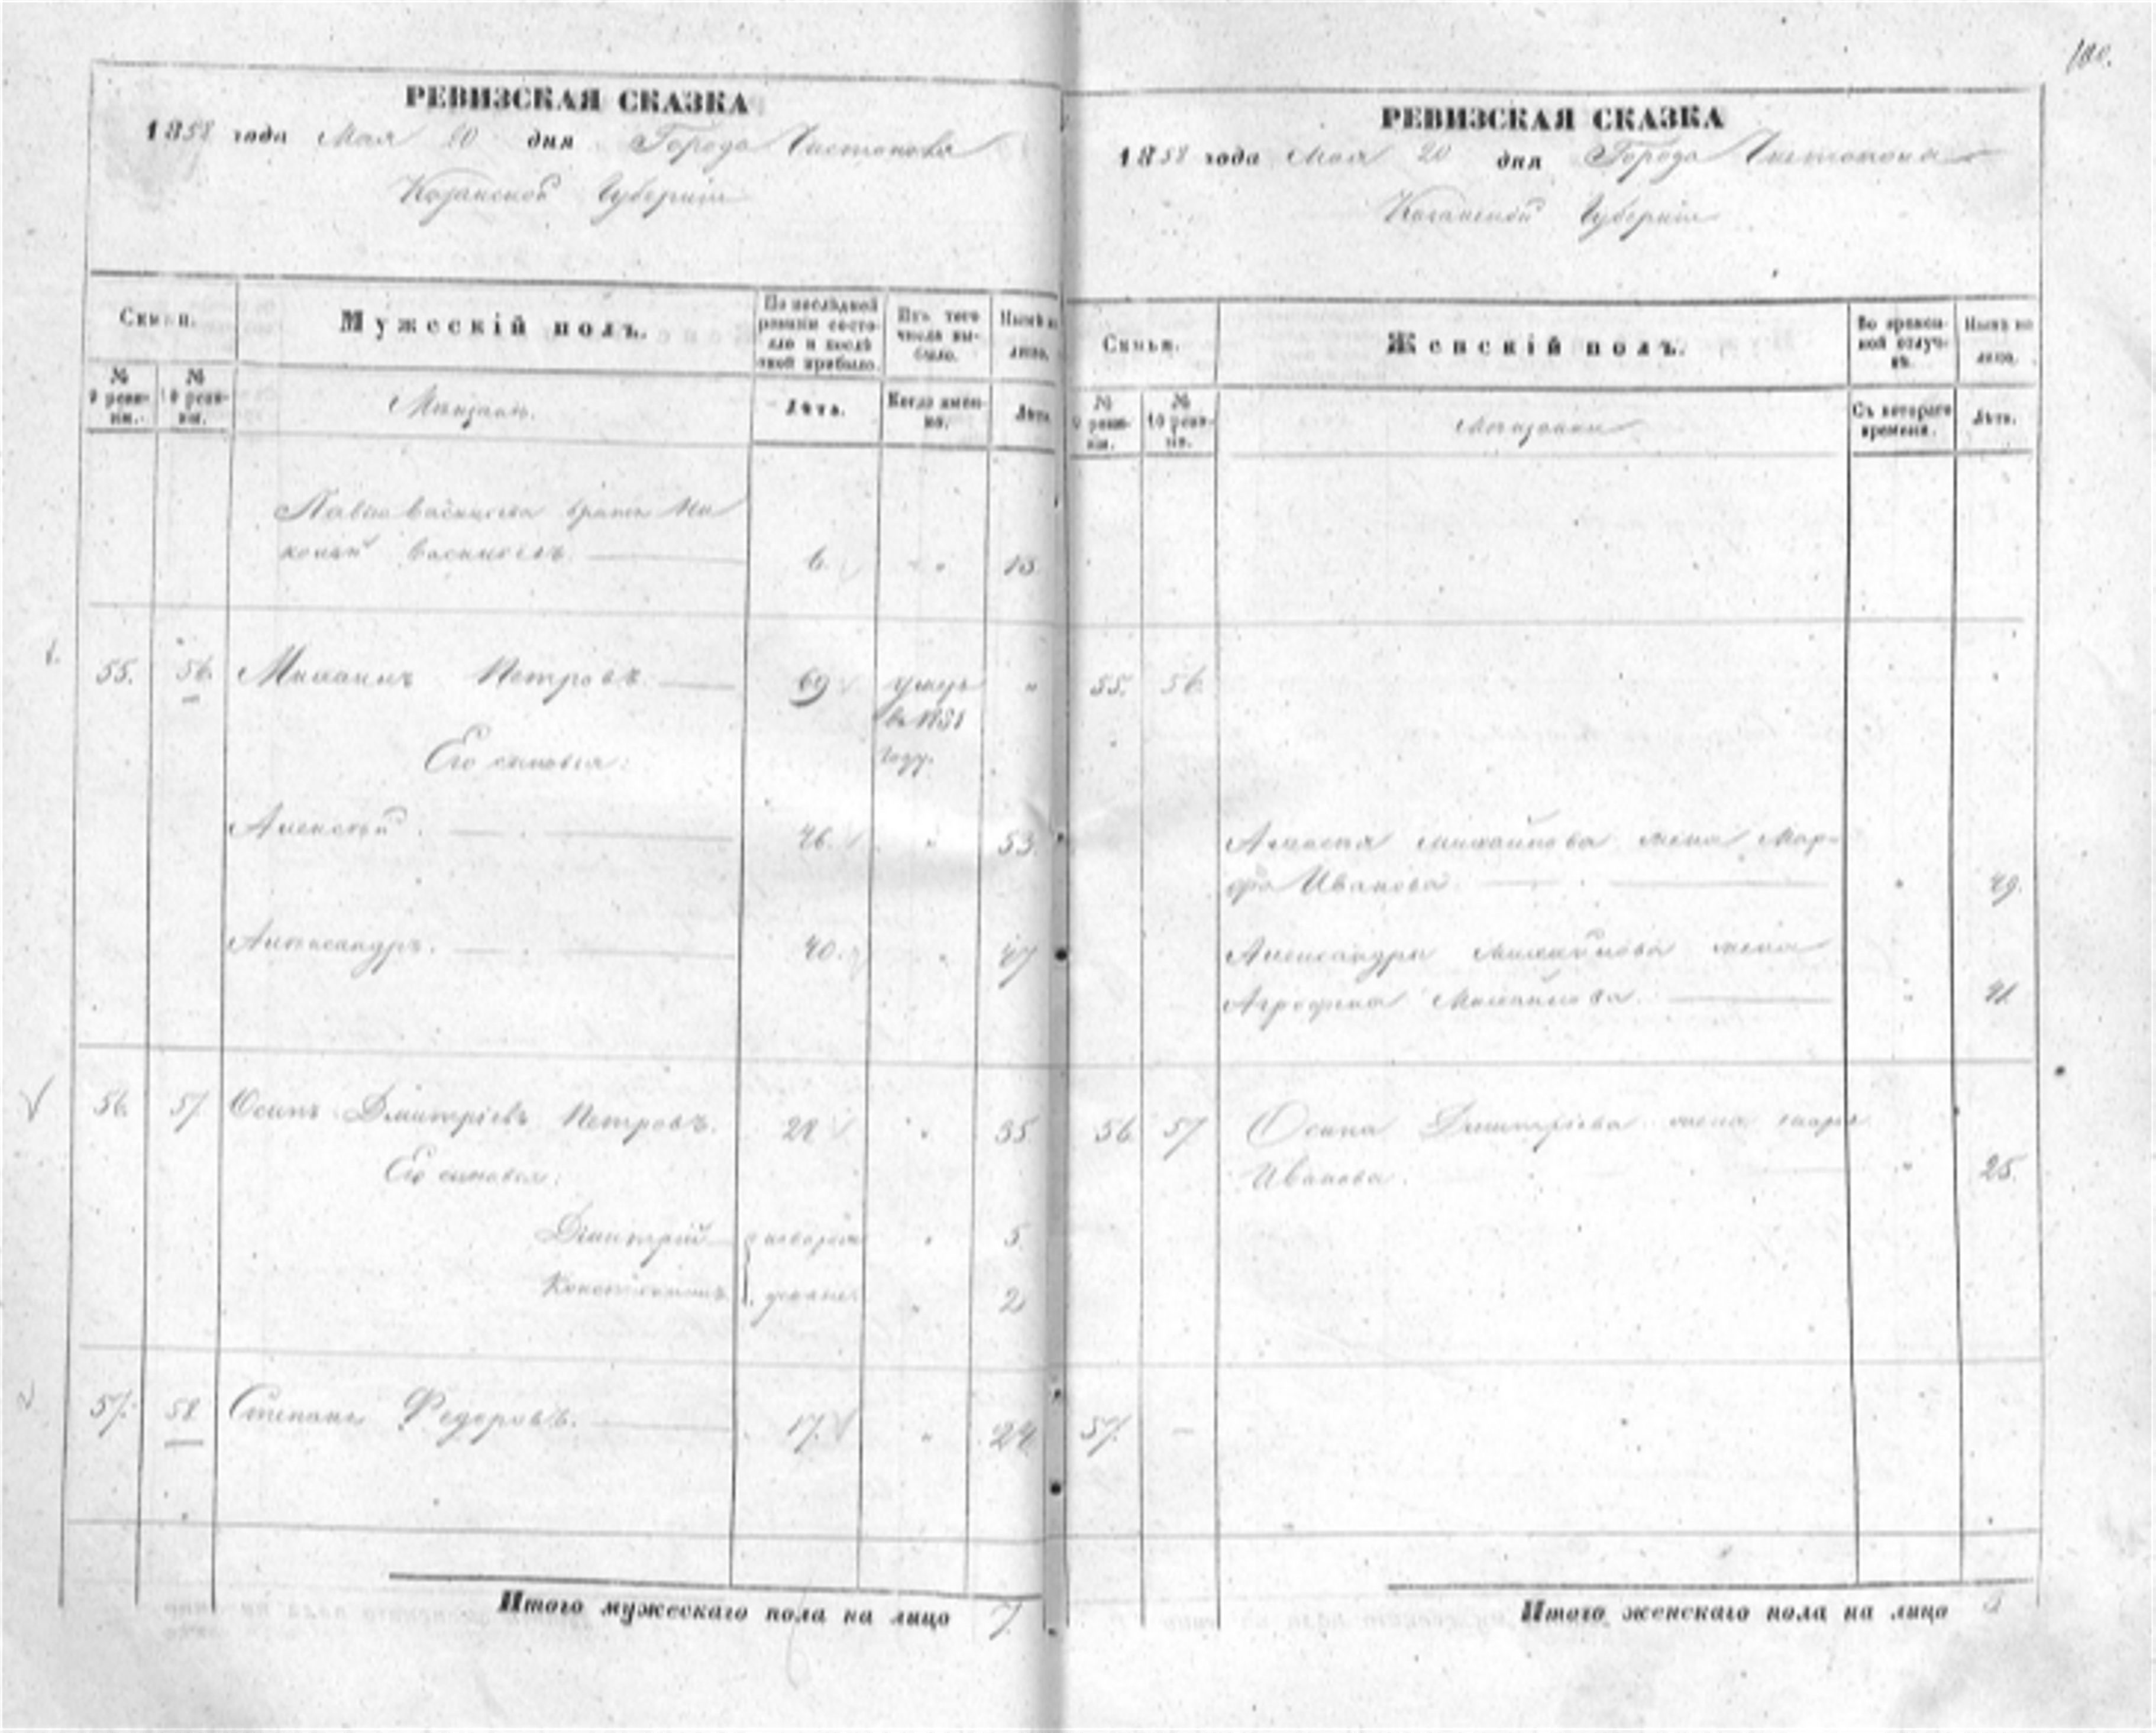 100.
РЕВИЗСКАЯ СКАЗКА
1858 года Мая 20 дня Города Чистополя
Казанской Губерніи
Семьи.
Мужескій полъ.
По послѣдней ревизіи состояло и послѣ оной прибыло.
Изъ того числа выбыло.
Нынѣ на лицо.
№ 9 ревизіи.
№ 10 ревизіи.
Мѣщане.
Лѣта.
Когда именно.
Лѣта.
Васильева братъ Ни
колай Васильевъ. 6. " 13.
55. 56. Михаилъ Петровъ. 69 умеръ "
въ 1851
году.
Его сыновья:
Алексѣй. 46. " 53.
Александръ. 40. " 47
56. 57. Осипъ Дмитріевъ Петровъ. 28 " 35
Его сыновья:
Дмитрій новорож " 5.
Константинъ денные " 2
57. 58 Степанъ Федоровъ. 17. " 24.
Итого мужескаго пола на лицо 7.
РЕВИЗСКАЯ СКАЗКА
1858 года Мая 20 дня Города Чистополя
Казанской Губерніи
Семьи.
Женскій полъ.
Во временной отлучкѣ.
Нынѣ на лицо.
№ 9 ревизіи.
№ 10 ревизіи.
Мѣщанки
Съ котораго времени.
Лѣта.
55. 56.
Алексѣя Михайлова жена Мар-
фа Иванова. " 49.
Александра Михайлова жена
Аграфена Михайлова. " 41
56. 57 Осипа Дмитріева жена Марья
Иванова. " 25.
57. –
Итого женскаго пола на лицо 3